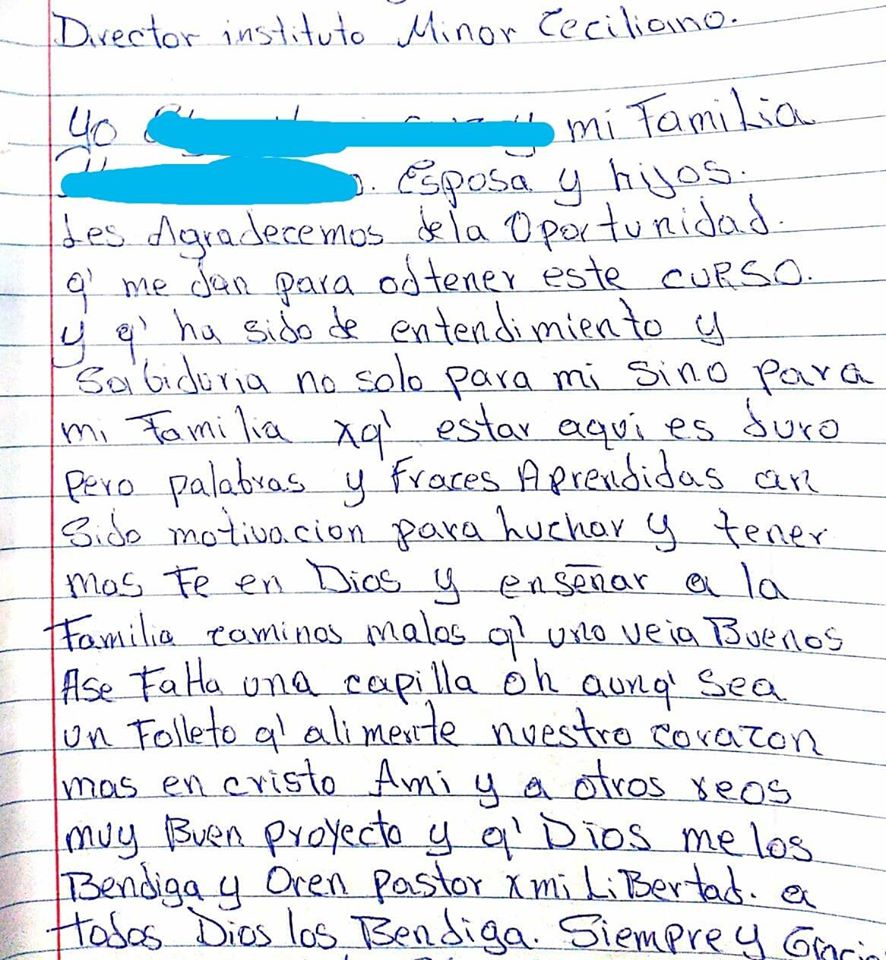 Director instituto Minor Ceciliano.
Yo mi Familia
Esposa y hijos.
Les Agradecemos dela Oportunidad.
q' me dan para odtener este curso.
y q' ha sido de entendimiento y
Sabiduria no solo para mi sino para
mi Familia xq' estar aqui es duro
pero palabras y Fraces Aprendidas an
Sido motivacion para huchar y tener
mas Fe en Dios y enseñar a la
Familia caminos malos q' uno veia Buenos
Ase Falta una capilla oh aunq' sea
un Folleto q' alimente nuestro corazon
mas en cristo Ami y a otros reos
muy Buen proyecto y q' Dios me los
Bendiga y Oren Pastor x mi LiBertad. a
todos Dios los Bendiga. Siempre y